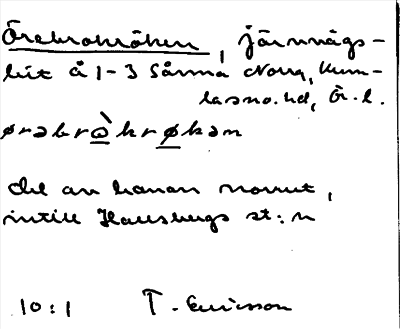 Örebrokröken, järnvägs-
bit å 1-3 Sånna Norra, Kum-
la sn o. hd, Ör. l.
ørəbròkrøkən
del av banan norrut,
intill Hallsbergs st:n
10:1 T. Ericsson